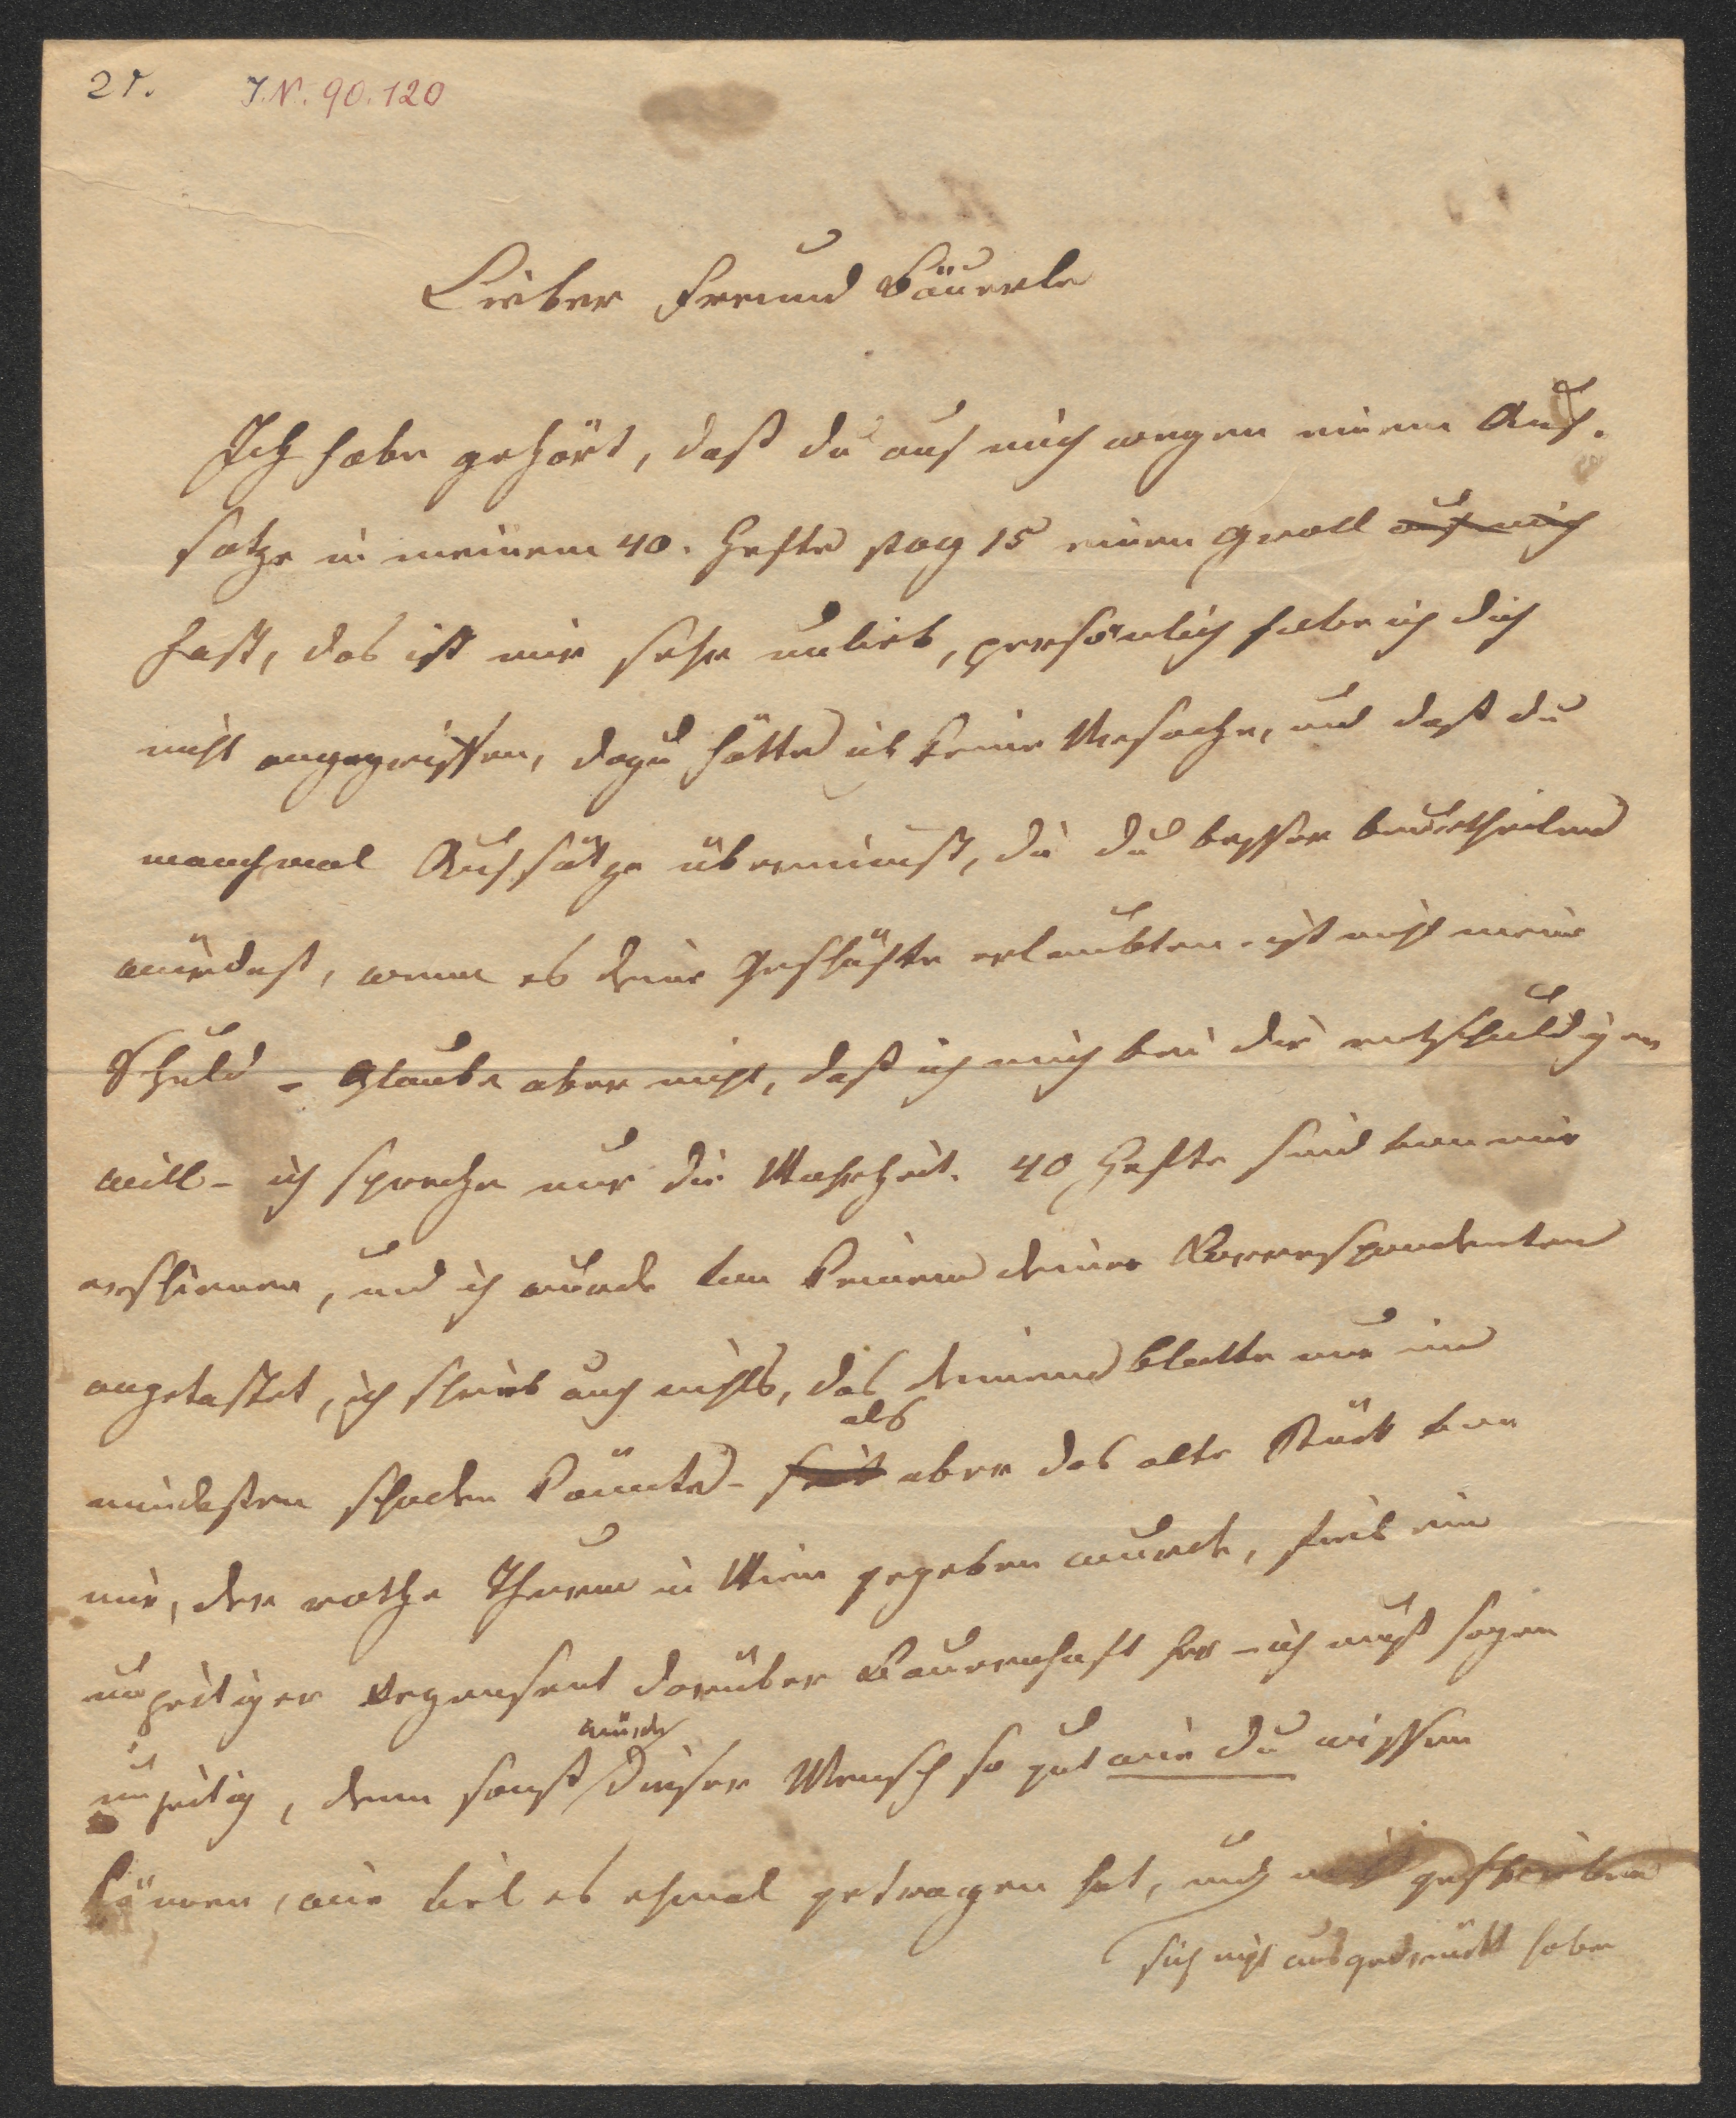 21. I.N. 90.120
Lieber Freund Bäuerle
Ich habe gehört, daß du auf mich wegen einem Auf-
satze in meinem 40. Hefte pag 15 einen Groll auf mich
hast, das ist mir sehr unlieb, persönlich habe ich dich
nicht angegriffen, dazu hätte ich keine Ursache, und daß du
manchmal Aufsätze übernimst, die du besser beurtheilen
würdest, wenn es deine Geschäfte erlaubten - ist nicht meine
Schuld - Glaube aber nicht, daß ich mich bei dir entschuldigen
will - ich spreche nur die Wahrheit. 40 Hefte sind von mir
erschienen, und ich wurde von keinem deiner Korrespondenten
angetastet, ich schrieb auch nichts, das deinem Blatte nur im
als
mindesten schaden könnte - seit aber das alte Stück von
mir, der rothe Thurm in Wien gegeben wurde, fiel ein
unzeitiger Rezensent darüber Bauernhaft her - ich muß sagen
würde
unzeitig, denn sonst dieser Mensch so gut wie du wissen
können, wie viel es ehmal getragen hat, und geschrieben
sich nicht ausgedrückt haben